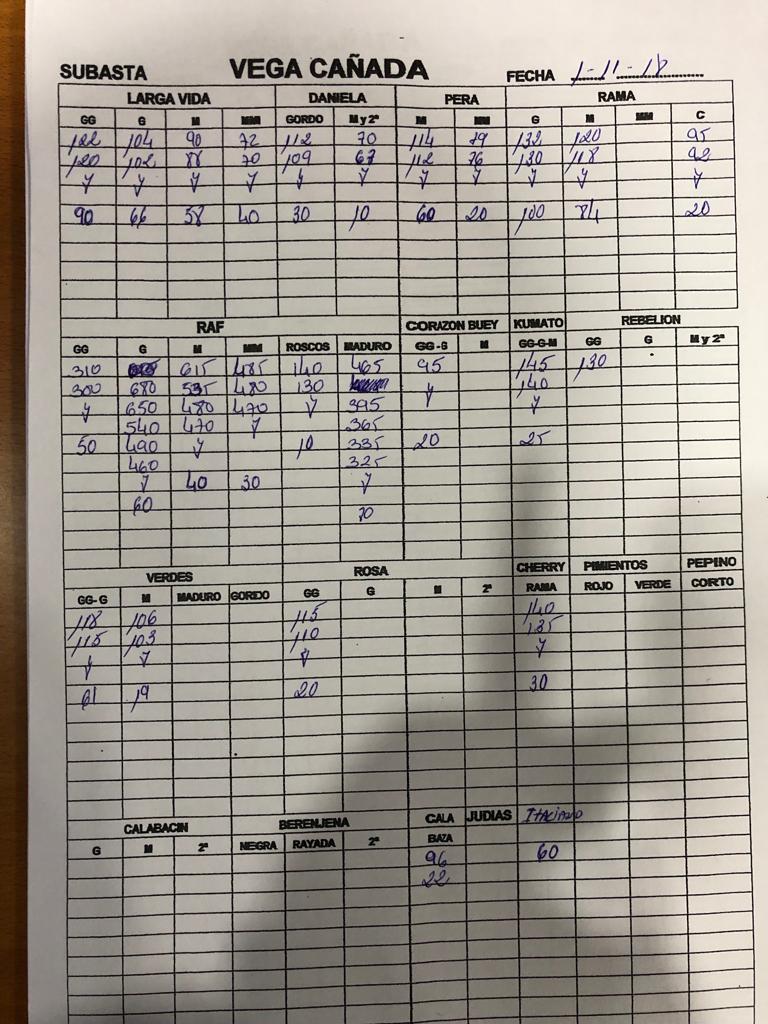 SUBASTA VEGA CAÑADA FECHA 1-11-18
LARGA VIDA DANIELA PERA RAMA
GG G M MM GORDO M y 2ª M MM G M MM C
122 104 90 72 112 70 114 79 132 120 95
120 102 88 70 109 67 112 76 130 118 92
y y y y y y y y y y y
90 66 58 40 30 10 60 20 100 84 20
RAF CORAZON BUEY KUMATO REBELION
GG G M MM ROSCOS MADURO GG-G M GG-G-M GG G M y 2ª
310 615 485 140 465 95 145 130
300 680 535 480 130 y 140
y 650 480 470 y 395 y
540 470 y 365
50 490 y 10 335 20 25
460 325
y 40 30 y
60 70
VERDES ROSA CHERRY PIMIENTOS PEPINO
GG-G M MADURO GORDO GG G M 2ª RAMA ROJO VERDE CORTO
118 106 115 140
115 103 110 135
y y y y
61 19 20 30
CALABACIN BERENJENA CALA JUDIAS
G M 2ª NEGRA RAYADA 2ª BAZA
96 60
22